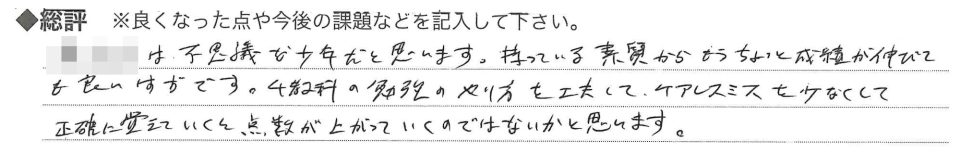 ◆総評 ※良くなった点や今後の課題などを記入して下さい。
は、不思議な少年だと思います。持っている素質からもうちょっと成績が伸びて
も良いはずです。4教科の勉強のやり方を工夫して、ケアレスミスを少なくして
正確に覚えていくと点数が上がっていくのではないかと思います。